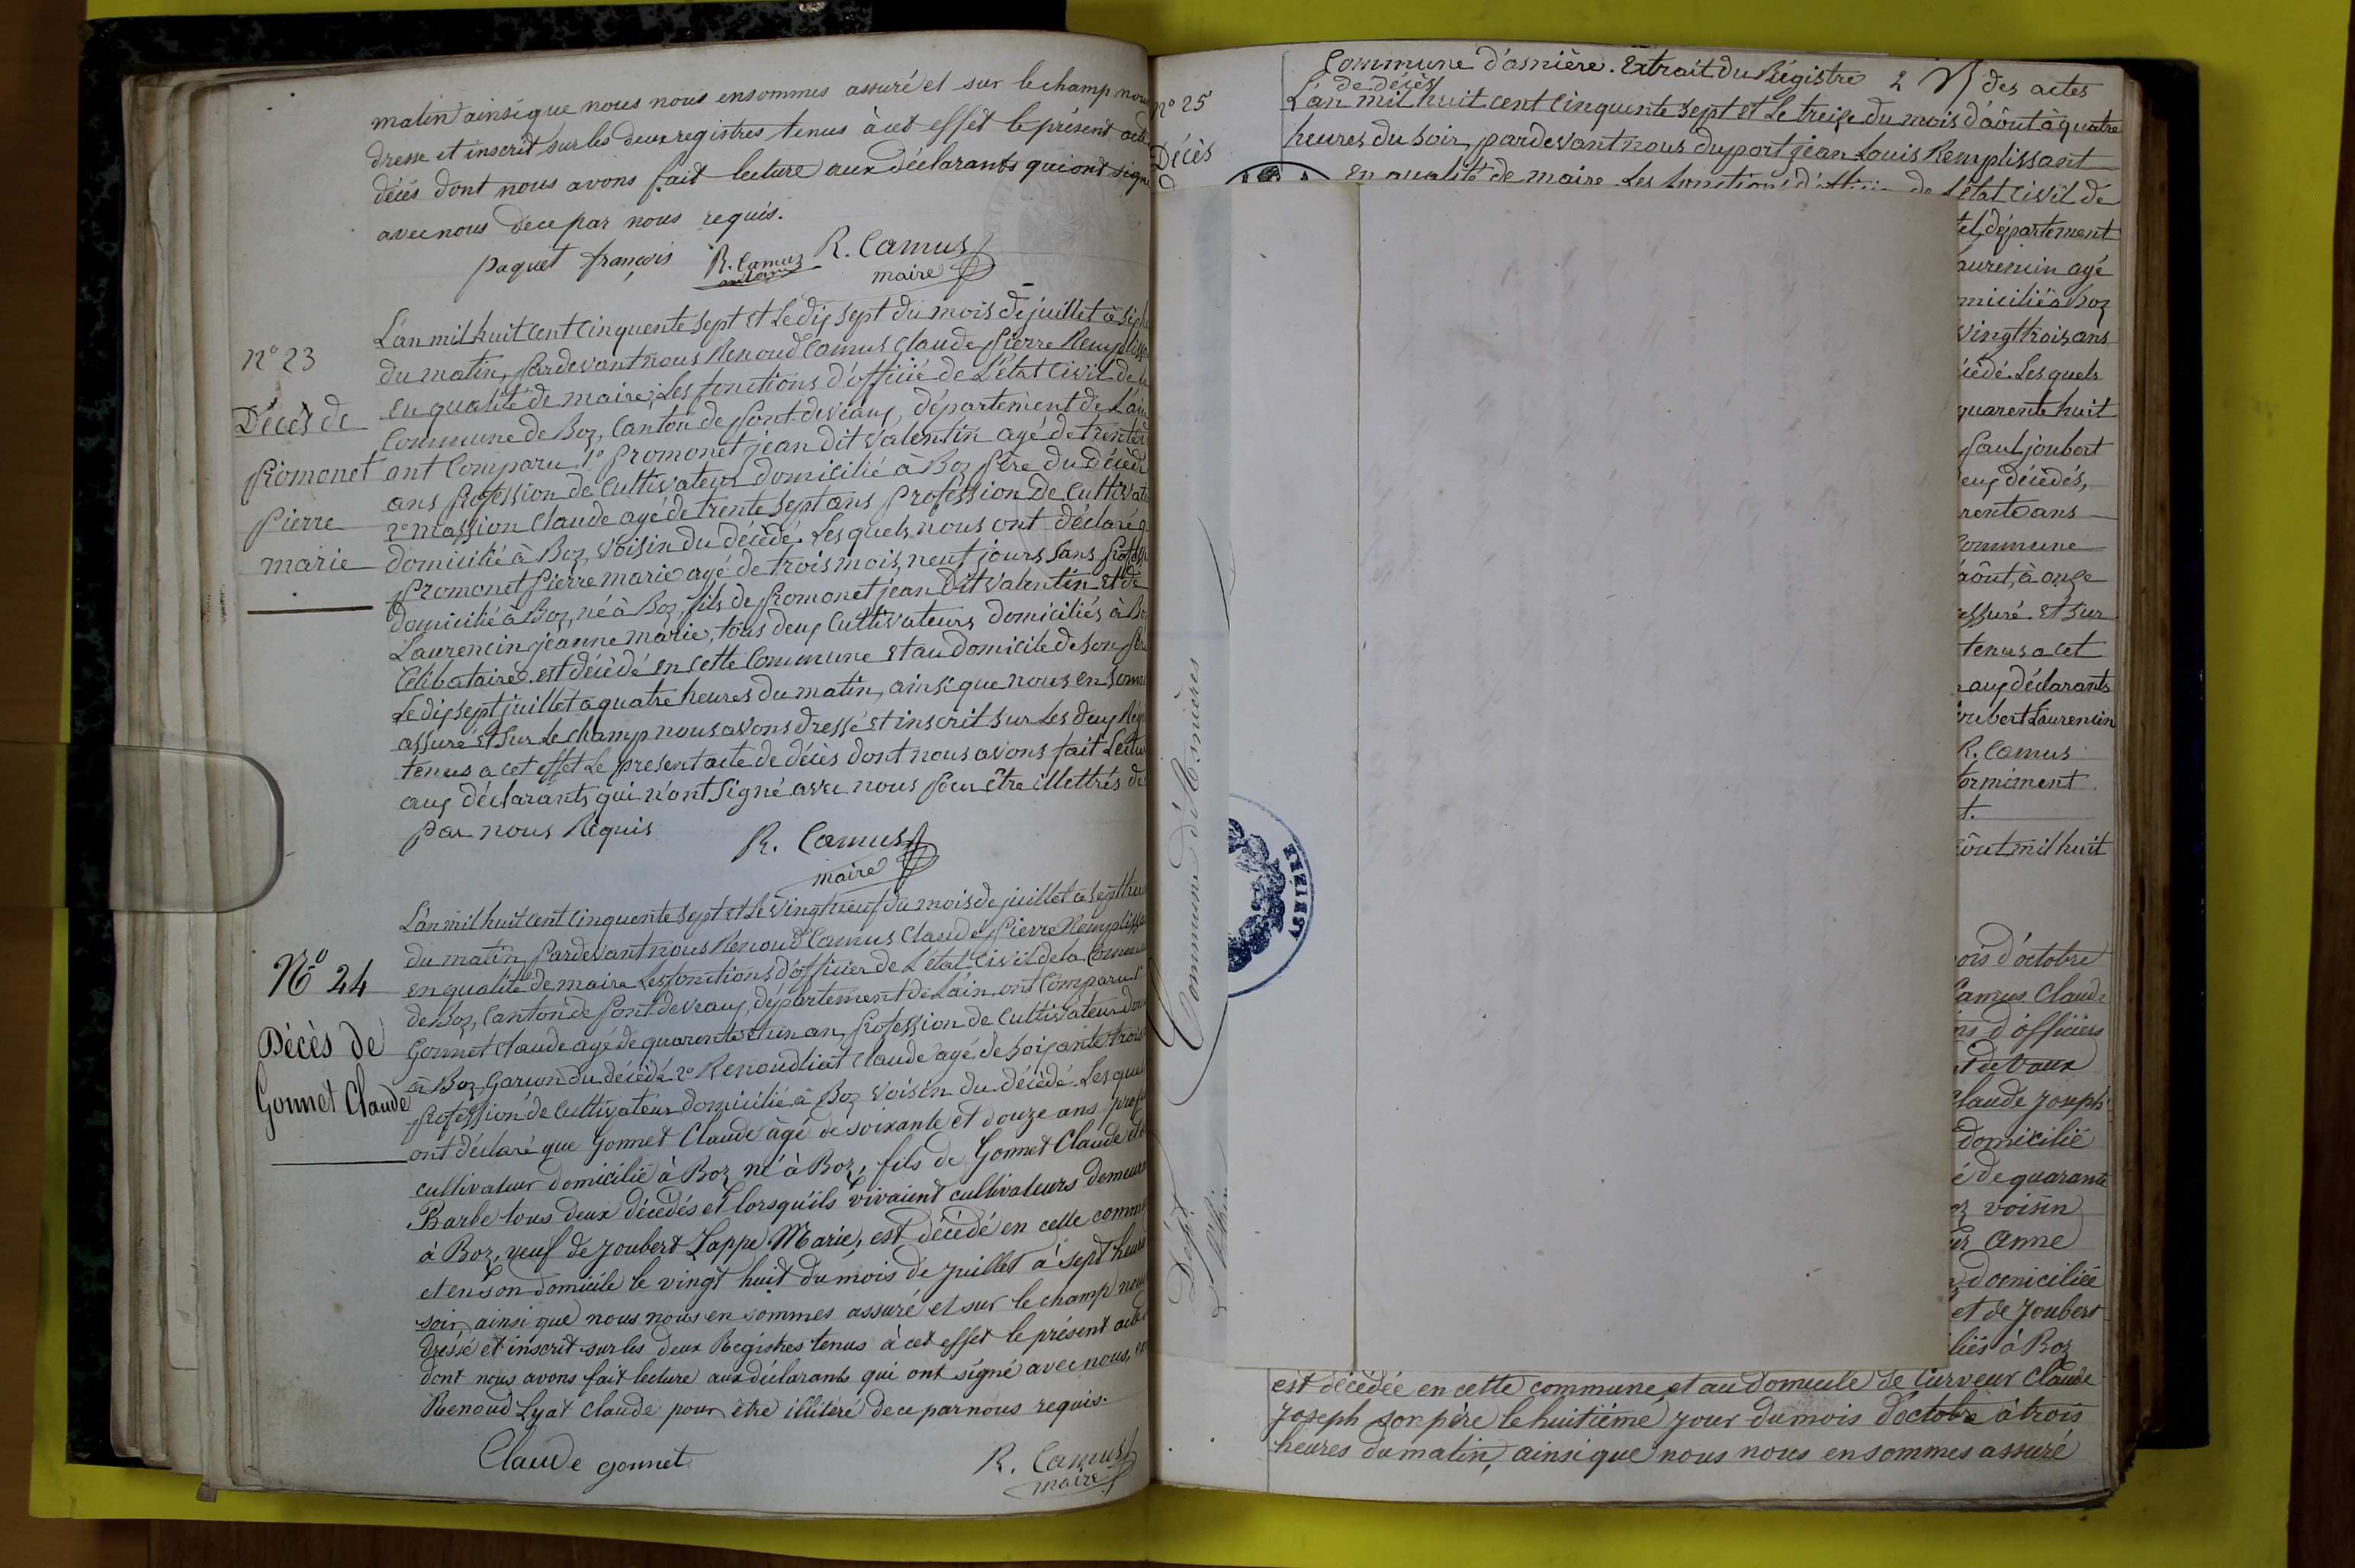 matin ainsi que nous nous en sommes assuré et sur le champ nous
dresse et inscrit sur les deux registres tenus à cet effet le présent acte
décès dont nous avons fait lecture aux déclarants qui ont signé
avec nous de ce par nous requis.
paquet françois R. Camuz R. Camus
maire
n° 23
Décés de
Promonet
Pierre
marie
L'an mil huit cent cinquente sept et le dix sept du mois de juillet à six h
du matin, pardevant nous Renoud Camus Claude Pierre Remplissa
en qualité de maire, Les fonctions d'officié de L'état civil de la
Commune de Boz, Canton de Pont-deveaux, département de L'ain
ont Comparu, 1° Promonet jean dit Valentin agé de trente
ans profession de Cultivateur domicilié à Boz Père du décédé
2° massion Claude agé de trente sept ans profession de Cultivate
domicilié à Boz, voisin du décédé. Les quels nous ont déclaré q
Promonet Pierre marie agé de trois mois, neuf jours, sans profess
domicilié à Boz, né à Boz, fils de Promonet jean Dit Valentin et de
Laurencin jeanne marie, tous deux Cultivateurs domiciliés à Bo
Célibataire. est décédé en cette Commune et au domicile de son Père
Le dix sept juillet a quatre heures du matin, ainsi que nous en somme
assuré et sur Le champ nous avons dressé et inscrit sur Les deux Rég
tenus a cet effet Le present acte de décès dont nous avons fait Lectu
aux déclarants qui n'ont signé avec nous pour être illettrés de
par nous Requis
R. Camus
maire
N° 24
Décès de
Gonnet Claude
L'an mil huit cent cinquente sept et Le vingt neuf du mois de juillet à sept heu
du matin, Pardevant nous Renoud Camus Claude Pierre Remplissa
en qualité de maire Les fonctions d'officier de L'état Civil de la Commu
de Boz, Canton de Pont devaux, département de L'ain, ont Comparu 1°
Gonnet Claude agé de quarente et un an, profession de Cultivateur dom
à Boz, Garson du décédé 2° Renoudliat Claude agé de soixante trois
profession de Cultivateur domicilié à Boz voisin du décédé. Les quel
ont déclaré que Gonnet Claude âgé de soixante et douze ans prof
cultivateur domicilié à Boz né à Boz, fils de Gonnet Claude et de
Barbe tous deux décédés et lorsqu'ils vivaient cultivateurs demeura
à Boz, veuf de Joubert Lappe Marie, est décédé en cette commu
et en son domicile le vingt huit du mois de Juillet à sept heures
soir, ainsi que nous nous en sommes assuré et sur le champ nous
dressé et inscrit sur les deux Registres tenus à cet effet le présent acte
dont nous avons fait lecture aux déclarants qui ont signé avec nous, ex
Renoud Lyat Claude pour être illitéré de ce par nous requis.
Claude gonnet
R. Camus
maire
Commune d'asnière. Extrait du Régistre 2 des actes
de décès
n° 25
Décès
L'an mil huit cent cinquente sept et Le treize du mois d'aôut à quatre
heures du soir, pardevant nous duport jean Louis Remplissant
en qualité de maire Les fonctions de L'état civil de
département
aurencin agé
micilié à Boz
vingt trois ans
cédé. Les quels
quarente huit
Paul joubert
eux décédés,
rente ans
Commune
aôut, à onze
assuré. et sur
tenus a cet
aux déclarants
oubert Laurencin
R. Camus
ormément
t.
aôut mil huit
Commune d'Asnières
Dépt
ois d'octobre
Camus Claude
ns d'officiers
t de vaux
Claude Joseph
domicilié
é de quarante
oz voisin
ur Anne
domiciliée
et de Joubert
liés à Boz
est décédée en cette commune, et au domicile de Curveur Claude
Joseph son père le huitième jour du mois d'octobre à trois
heures du matin, ainsi que nous nous en sommes assuré